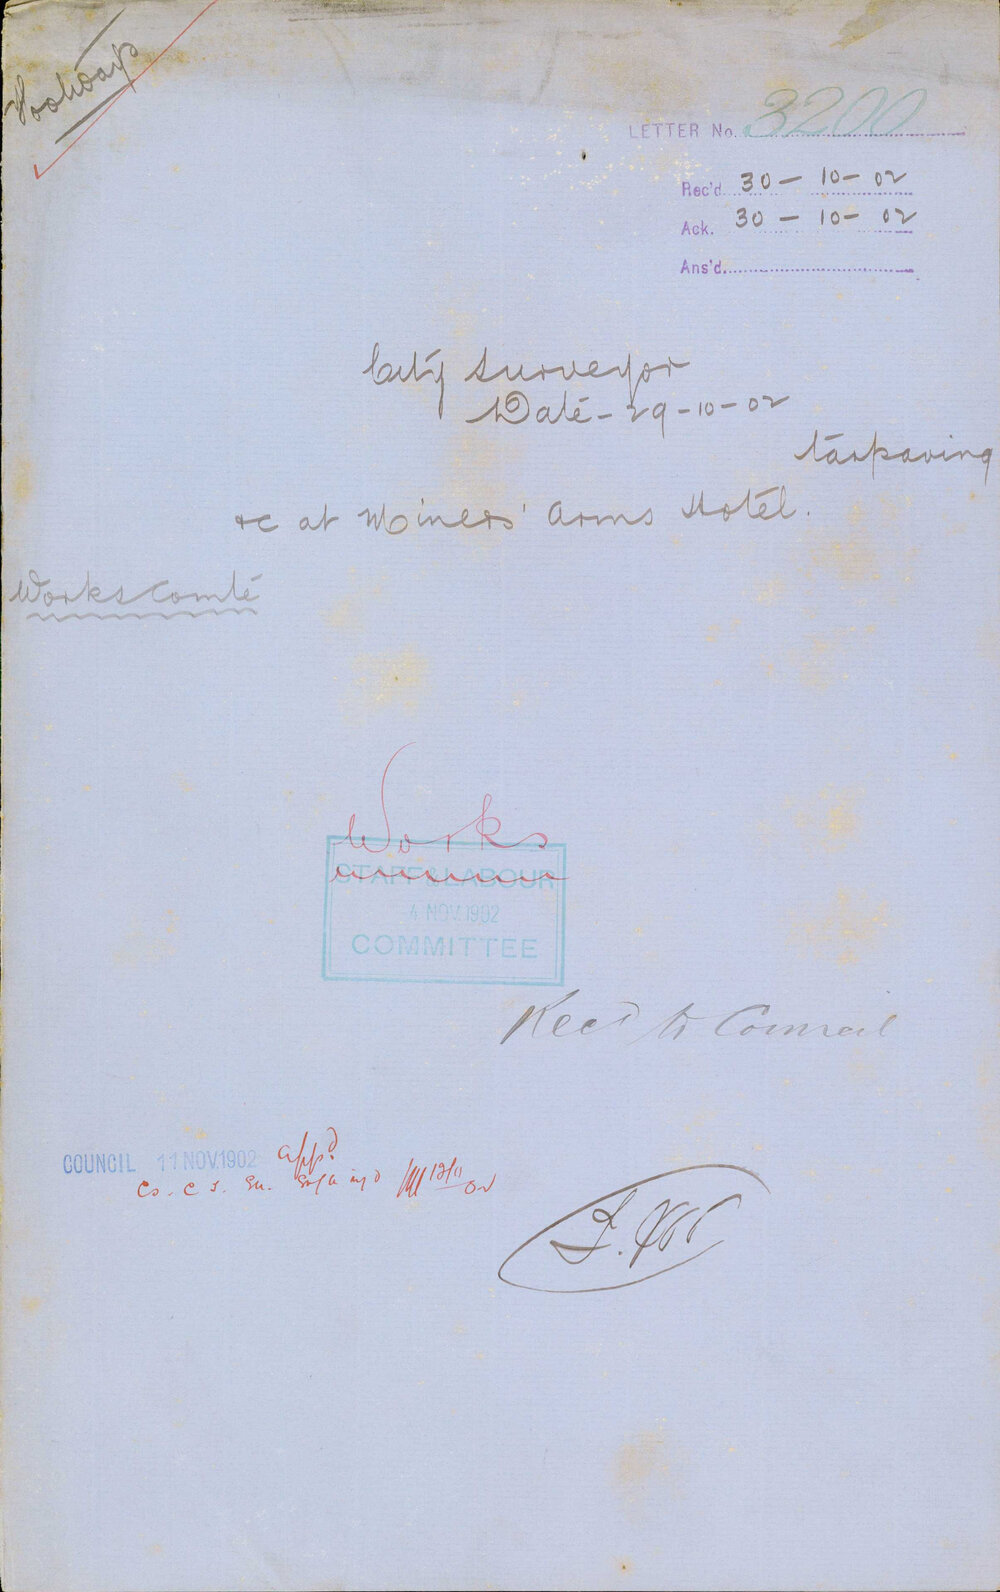 Footways
LETTER No. 3200
Rec'd 30 - 10 - 02
Ack. 30 - 10 - 02
Ans'd.
City Surveyor
Date - 29 - 10 - 02
tarpaving
&c at Miners' Arms Hotel.
Works Comte
Works
STAFF & LABOUR
4 NOV. 1902
COMMITTEE
Rec'd to Council
COUNCIL 11 NOV. 1902 appd
12/11/02